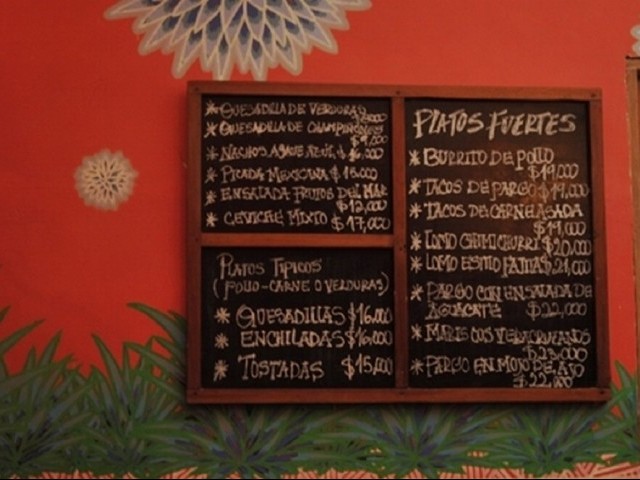 * QUESADILLA DE VERDURAS
* QUESADILLA DE CHAMPIÑONES
* NACHOS AGAVE AZUL $16,000
* PICADA MEXICANA $18.000
* ENSALADA FRUTOS DEL MAR
$12,000
* CEVICHE MIXTO $17,000
PLATOS TIPICOS
(POLLO-CARNE O VERDURAS)
* QUESADILLAS $16.000
* ENCHILADAS $16,000
* TOSTADAS $15,000
PLATOS FUERTES
* BURRITO DE POLLO
$19,000
* TACOS DE PARGO $19,000
* TACOS DE CARNE ASADA
$19,000
* LOMO CHIMICHURRI $20,000
* LOMO ESTILO FAJITAS $21,000
* PARGO CON ENSALADA DE
AGUACATE $22,000
* MARISCOS VERACRUZANOS
$23,000
* PARGO EN MOJO DE AJO
$22,000